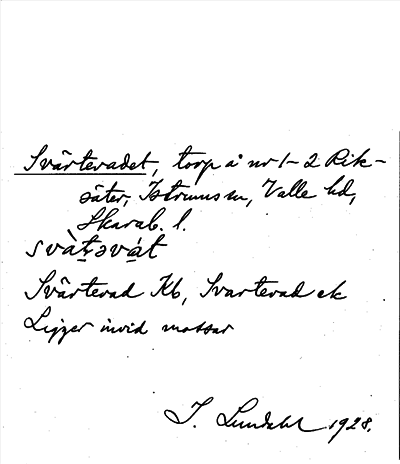 Svärtevadet, torp å nr 1-2 Rik-
säter, Istrums sn, Valle hd,
Skarab. l.
svàt̤əvát
Svärtevad Kb, Svartevad ek
Ligger invid mossar
I. Lundahl 1928.